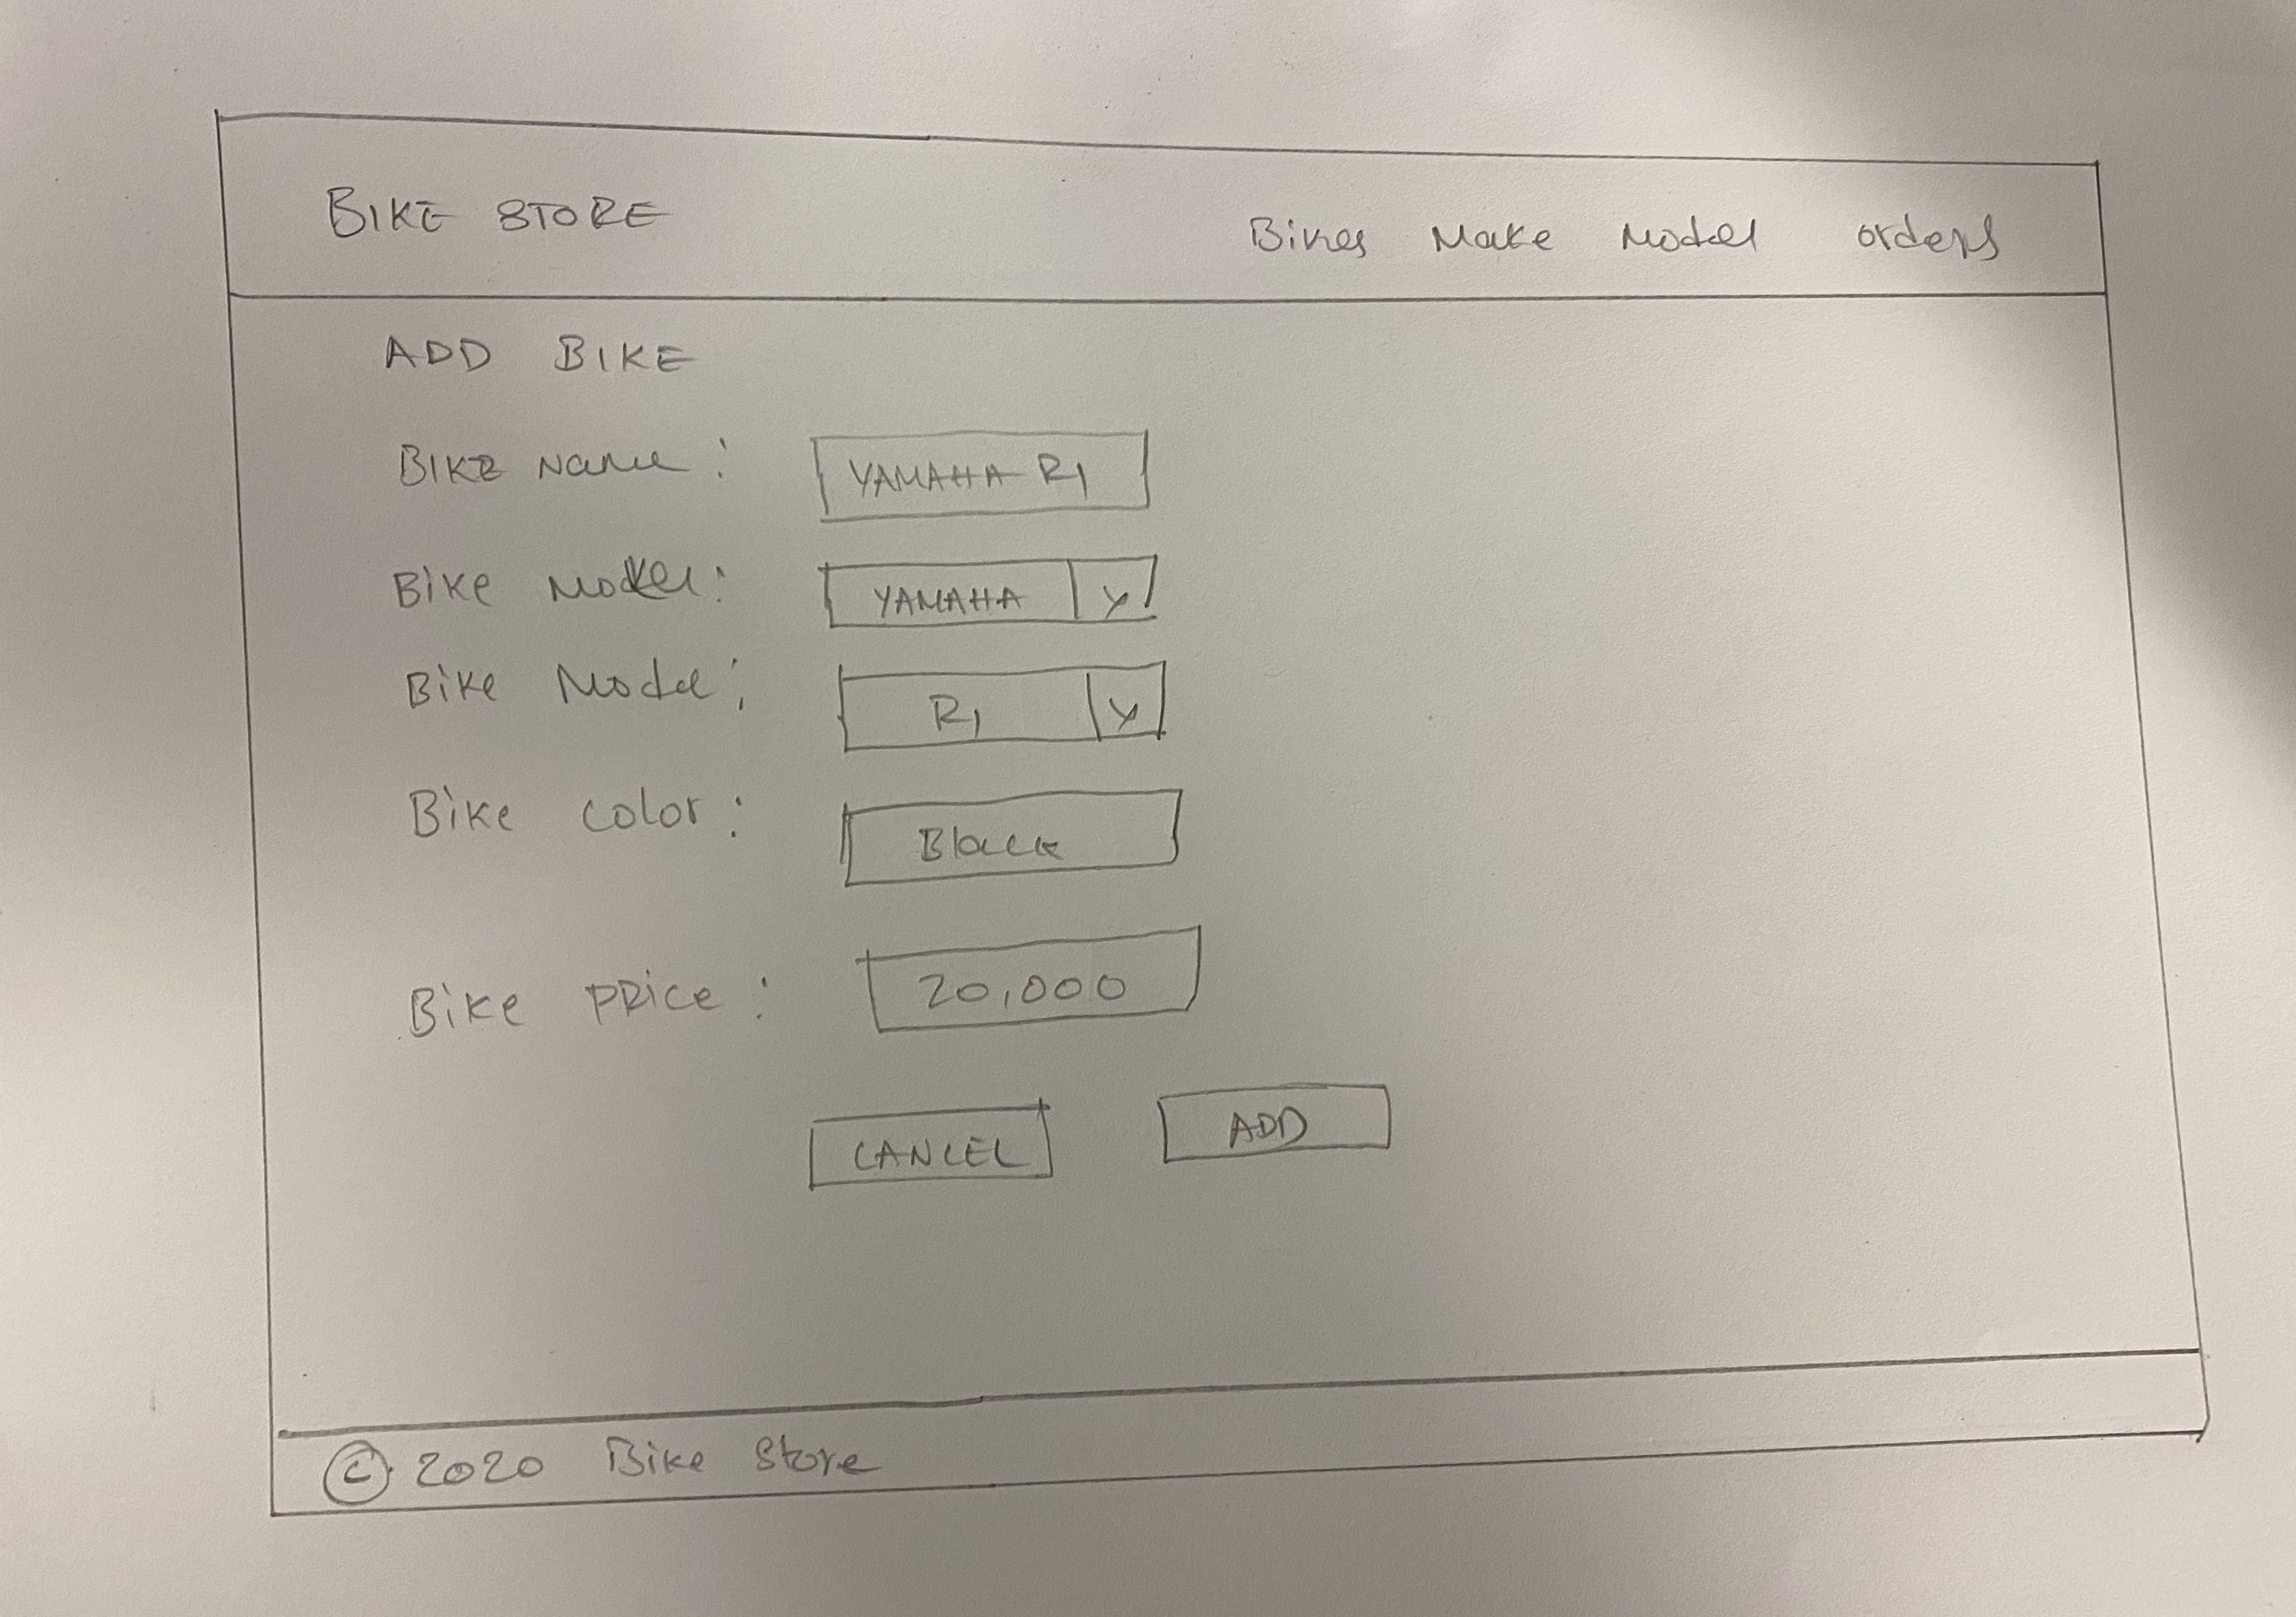 BIKE STORE
Bikes Make Model orders
ADD BIKE
BIKE Name : YAMAHA R1
Bike : YAMAHA
Bike Model : R1
Bike color : Black
Bike PRice : 20,000
CANCEL ADD
© 2020 Bike Store